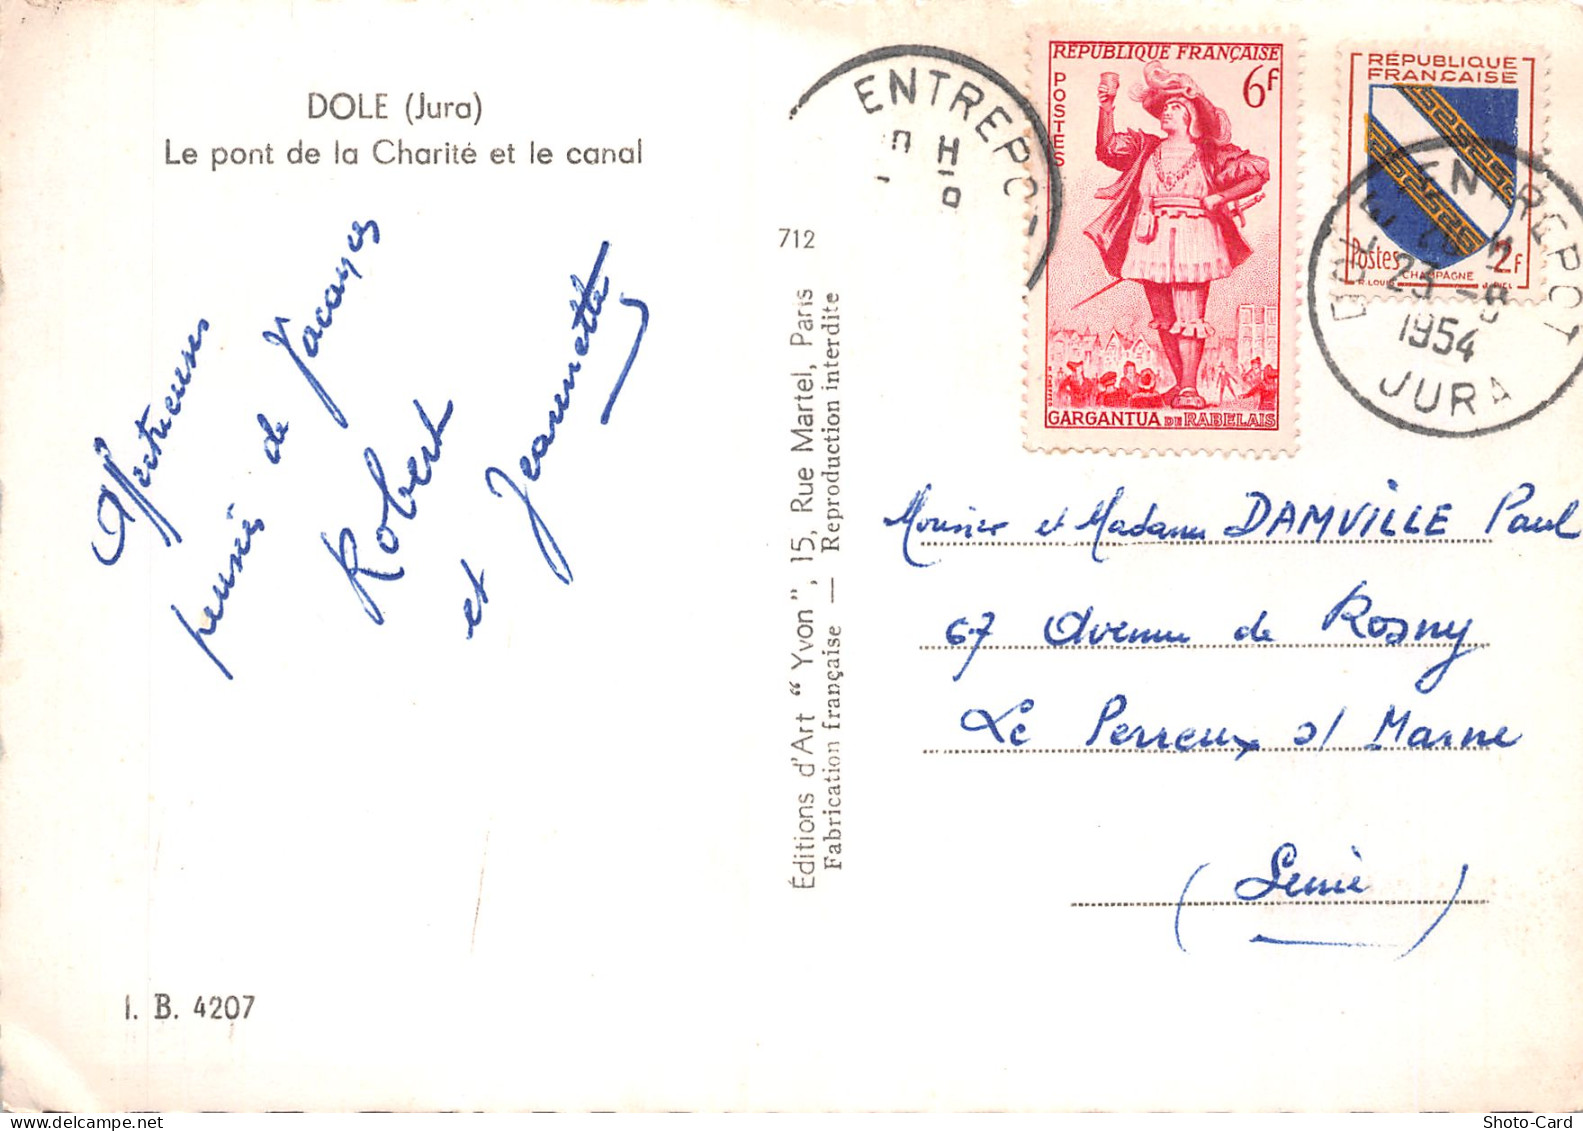 DOLE (Jura)
Le pont de la Charité et le canal
Affectueuses
pensées de Jacques
Robert
et Jeannette
I. B. 4207
712
Éditions d'Art "Yvon", 15, Rue Martel, Paris
Fabrication française — Reproduction interdite
ENTREPOT
RÉPUBLIQUE FRANÇAISE
POSTES
6F
GARGANTUA DE RABELAIS
RÉPUBLIQUE
FRANÇAISE
Postes 2F
CHAMPAGNE
R. LOUIS
ENTREPOT
23 -8
1954
JURA
Monsieur et Madame DAMVILLE Paul
67 Avenue de Rosny
Le Perreux s/ Marne
(Seine)
Shoto-Card